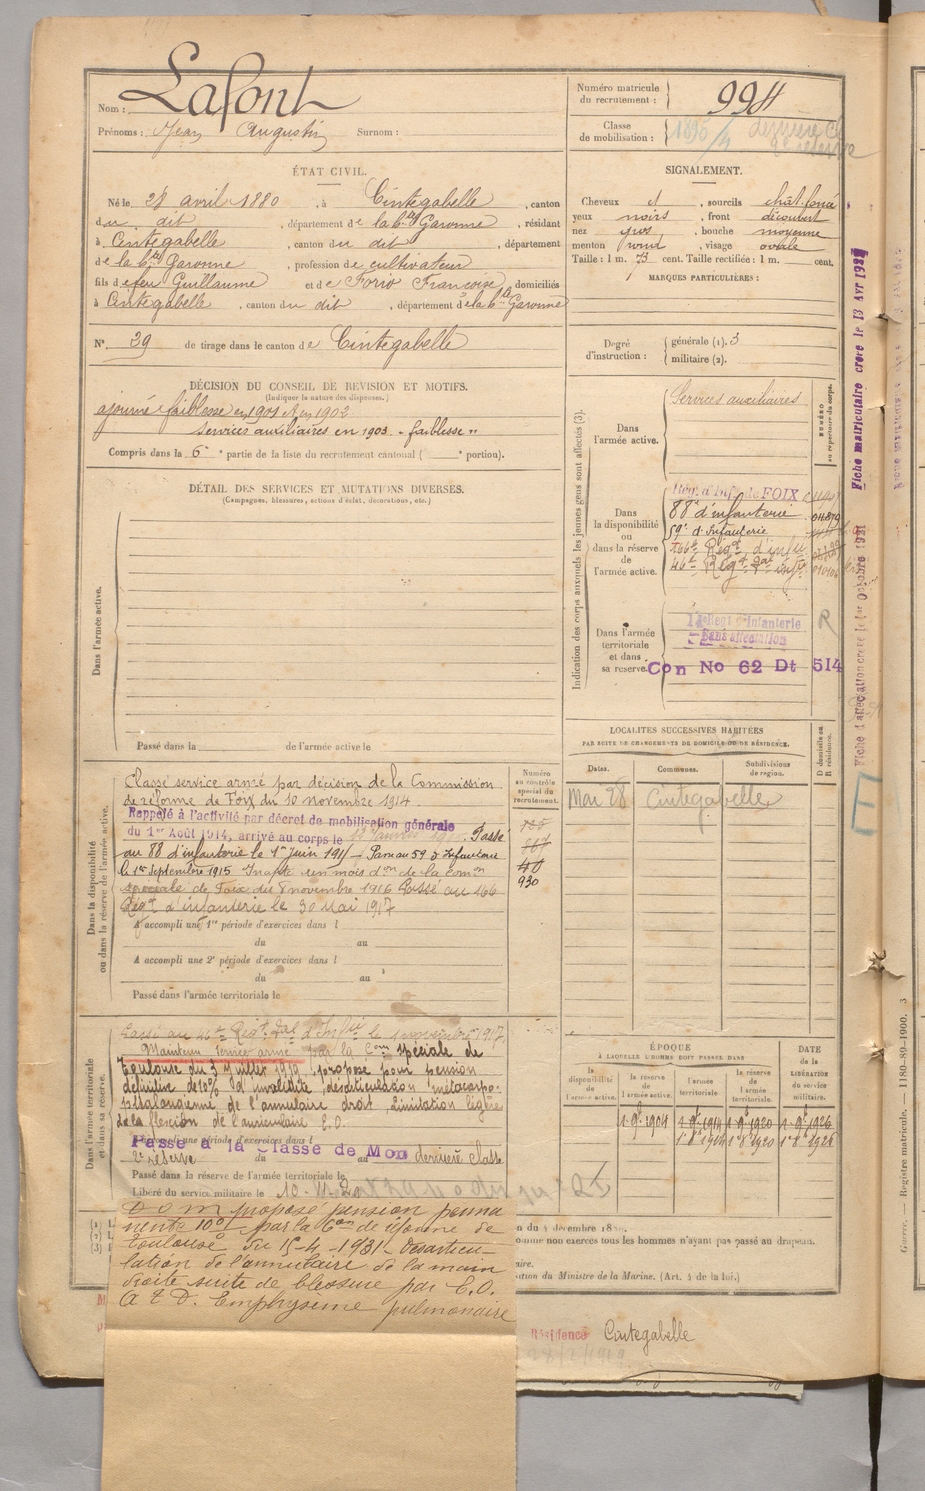 Nom : Lafont
Prénoms : Jean Augustin Surnom :
Numéro matricule du recrutement : 994
Classe de mobilisation : 1896/4 dernière Cl
de réserve
ÉTAT CIVIL.
Né le 28 avril 1880, à Cintegabelle, canton
du dit, département de la hte Garonne, résidant
à Cintegabelle, canton du dit, département
de la hte Garonne, profession de cultivateur
fils de feu Guillaume et de Forio Françoise, domiciliés
à Cintegabelle, canton du dit, département de la hte Garonne
N° 29 de tirage dans le canton de Cintegabelle
SIGNALEMENT.
Cheveux et, sourcils chât. foncé
yeux noirs, front découvert
nez gros, bouche moyenne
menton rond, visage ovale
Taille : 1 m. 73 cent. Taille rectifiée : 1 m. cent.
MARQUES PARTICULIÈRES :
Degré d'instruction : générale (1). 3
militaire (2).
DÉCISION DU CONSEIL DE REVISION ET MOTIFS.
(Indiquer la nature des dispenses.)
ajourné faiblesse en 1901 et en 1902
Services auxiliaires en 1903 - faiblesse "
Compris dans la 6e partie de la liste du recrutement cantonal ( e portion).
DÉTAIL DES SERVICES ET MUTATIONS DIVERSES.
(Campagnes, blessures, actions d'éclat, décorations, etc.)
Dans l'armée active.
Passé dans la de l'armée active le
Indication des corps auxquels les jeunes gens sont affectés (3).
NUMÉRO
au répertoire du corps.
Dans l'armée active.
Services auxiliaires
Dans la disponibilité ou dans la réserve de l'armée active.
Rég. d'Infie de FOIX
88e d'infanterie
59e d'Infanterie
166e Régt d'infie
46e Régt tal infie
Dans l'armée territoriale et dans sa réserve.
Régt d'Infanterie
Sans affectation
R
Con No 62 Dt 514
Fiche matriculaire créée le 13 Avr
Fiche d'affectation créée le 1er Octobre 1921
LOCALITÉS SUCCESSIVES HABITÉES
PAR SUITE DE CHANGEMENTS DE DOMICILE OU DE RÉSIDENCE.
Dates. Communes. Subdivisions de région. D domicile ou R résidence.
Mai 28 Cintegabelle
Dans la disponibilité ou dans la réserve de l'armée active.
Numéro au contrôle spécial du recrutement.
Classé service armé par décision de la Commission
de réforme de Foix du 10 novembre 1914
Rappelé à l'activité par décret de mobilisation générale
du 1er Août 1914, arrivé au corps le Janvier 1915. Passé
au 88 d'infanterie le 1er juin 1915 - Passé au 59 d'Infanterie
le 1er Septembre 1915 Inapte un mois don de la comon
spéciale de Foix du 8 novembre 1916 Passé au 166
Régt d'infanterie le 30 Mai 1917
40
930
A accompli une 1re période d'exercices dans l
du au
A accompli une 2e période d'exercices dans l
du au
Passé dans l'armée territoriale le
Dans l'armée territoriale et dans sa réserve.
Passé au 46e Régt tal d'Infie le 1 novembre 1917
Maintenu service armé par la Com spéciale de
Toulouse du 3 Juillet 1919, proposé pour pension
définitive de 10% d'invalidité, désarticulation métacarpo-
phalangienne de l'annulaire droit, limitation légère
de la flexion de l'auriculaire E.O.
A accompli une période d'exercices dans l
Passé à la Classe de Mon dernière classe
2e réserve du au
Passé dans la réserve de l'armée territoriale le
Libéré du service militaire le 10-11-
D O M proposé pension perma
nente 10% par la Con de réforme de
Toulouse du 15-4-1931. Désarticu-
lation de l'annulaire de la main
droite suite de blessure par E.O.
A & D. Emphysème pulmonaire
ÉPOQUE
À LAQUELLE L'HOMME DOIT PASSER DANS
la disponibilité de l'armée active. la réserve de l'armée active. l'armée territoriale. la réserve de l'armée territoriale.
DATE de la LIBÉRATION du service militaire.
1-9bre 1904 1-9bre 1914 1-9bre 1920 1-9bre 1926
on du 4 décembre
omme non exercés tous les hommes n'ayant pas passé au drapeau.
aire.
sation du Ministre de la Marine. (Art. 4 de la loi.)
Résidence Cintegabelle
Guerre. — Registre matricule. — 1180-89-1900. 3